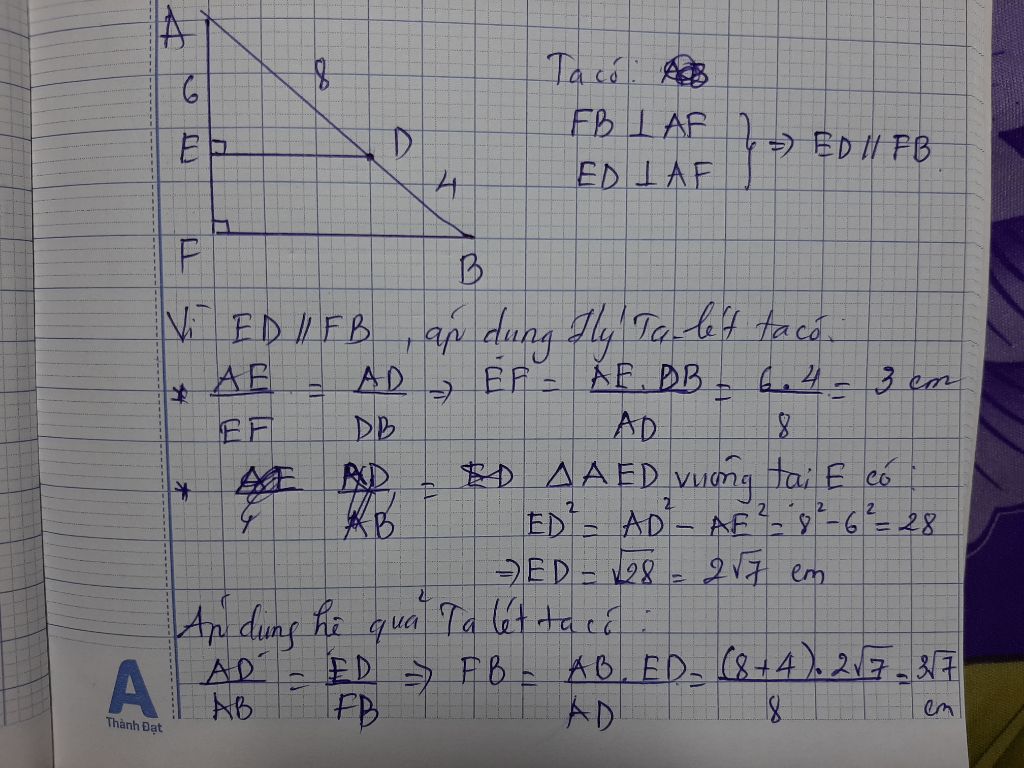 A
6
8
E
D
4
F
B
Ta có:
FB ⊥ AF
ED ⊥ AF
⇒ ED // FB
Vì ED // FB, áp dụng đlý Ta-lét ta có:
* AE/EF = AD/DB ⇒ EF = AE.DB/AD = 6.4/8 = 3 cm
* = ΔAED vuông tại E có:
ED² = AD² - AE² = 8² - 6² = 28
⇒ ED = √28 = 2√7 cm
Áp dụng hệ quả Ta lét ta có:
AD/AB = ED/FB ⇒ FB = AB.ED/AD = (8+4).2√7/8 = 3√7 cm
A
Thành Đạt